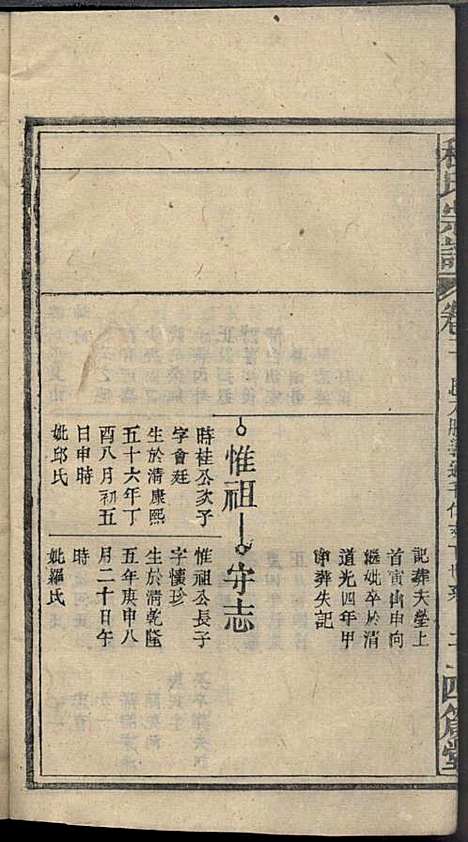 氏宗譜
卷
四箴堂
記葬夫塋上
首寅山申向
繼妣卒於清
道光四年甲
申葬失記
惟祖
時桂公次子
字會廷
生於清康熙
五十六年丁
酉八月初五
日申時
妣邱氏
守志
惟祖公長子
字懷珍
生於清乾隆
五年庚申八
月二十日午
時
妣羅氏